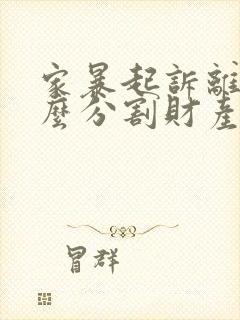 家暴起訴離
麼分割財產
冒群